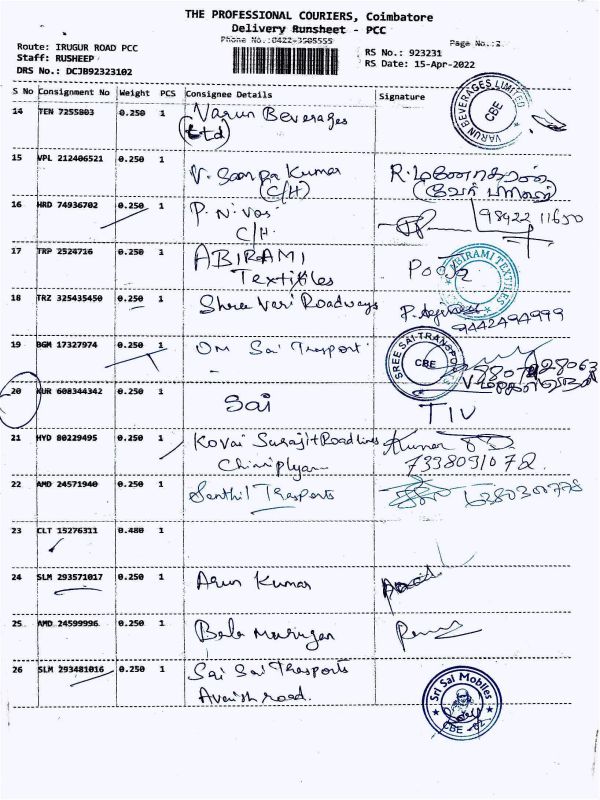 THE PROFESSIONAL COURIERS, Coimbatore
Delivery Runsheet - PCC
Phone No.:0422-3505555
Page No.:2
Route: IRUGUR ROAD PCC
Staff: RUSHEEP
DRS No.: DCJB92323102
RS No.: 923231
RS Date: 15-Apr-2022
S No Consignment No Weight PCS Consignee Details Signature
14 TEN 7255803 0.250 1 Varun Beverages
Ltd
VARUN BEVERAGES LIMITED
CBE
15 VPL 212406521 0.250 1 V. Kumar
(C/H)
R. மனோகரன்
16 HRD 74936702 0.250 1 P. N. Vas
C/H.
98422 11650
17 TRP 2524716 0.250 1 ABIRAMI
Textiles
Pooja
ABIRAMI TEXTILES
18 TRZ 325435450 0.250 1 Shree Vari Roadways
9442494999
19 BGM 17327974 0.250 1 Om Sai Trasport
SREE SAI TRANSPORT
CBE
20 KUR 608344342 0.250 1 Sai TIV
21 HYD 80229495 0.250 1 Kovai Roadlines
Kumar
7338091072
22 AMD 24571940 0.250 1 Senthil Trasports
23 CLT 15276311 0.480 1
24 SLM 293571017 0.250 1 Arun Kumar
25 AMD 24599996 0.250 1 Bala Murugan
26 SLM 293481016 0.250 1 Sai Sai Trasports
road.
Sri Sai Mobiles
CBE -62